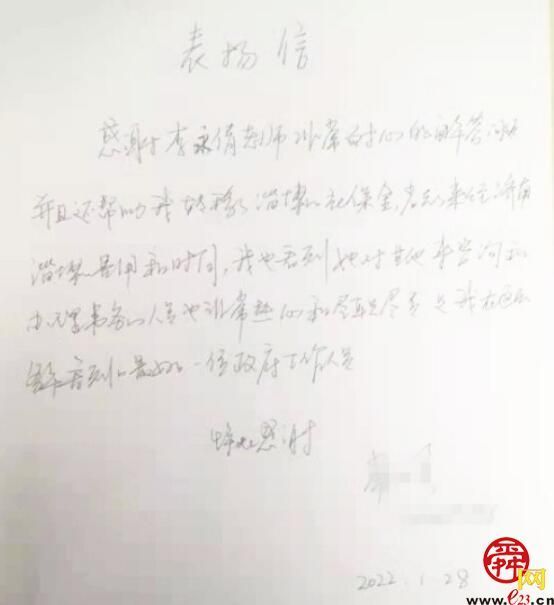 表扬信
感谢李永倩老师非常耐心的解答问题
并且还帮助我转移了淄博的社保金,省去来往济南
淄博费用和时间,我也看到她对其他来咨询和
办理事务的人员也非常热心和尽职尽责 是我在
看到的最好的一位政府工作人员
特此感谢
2022.1.28
舜网
www.e23.cn